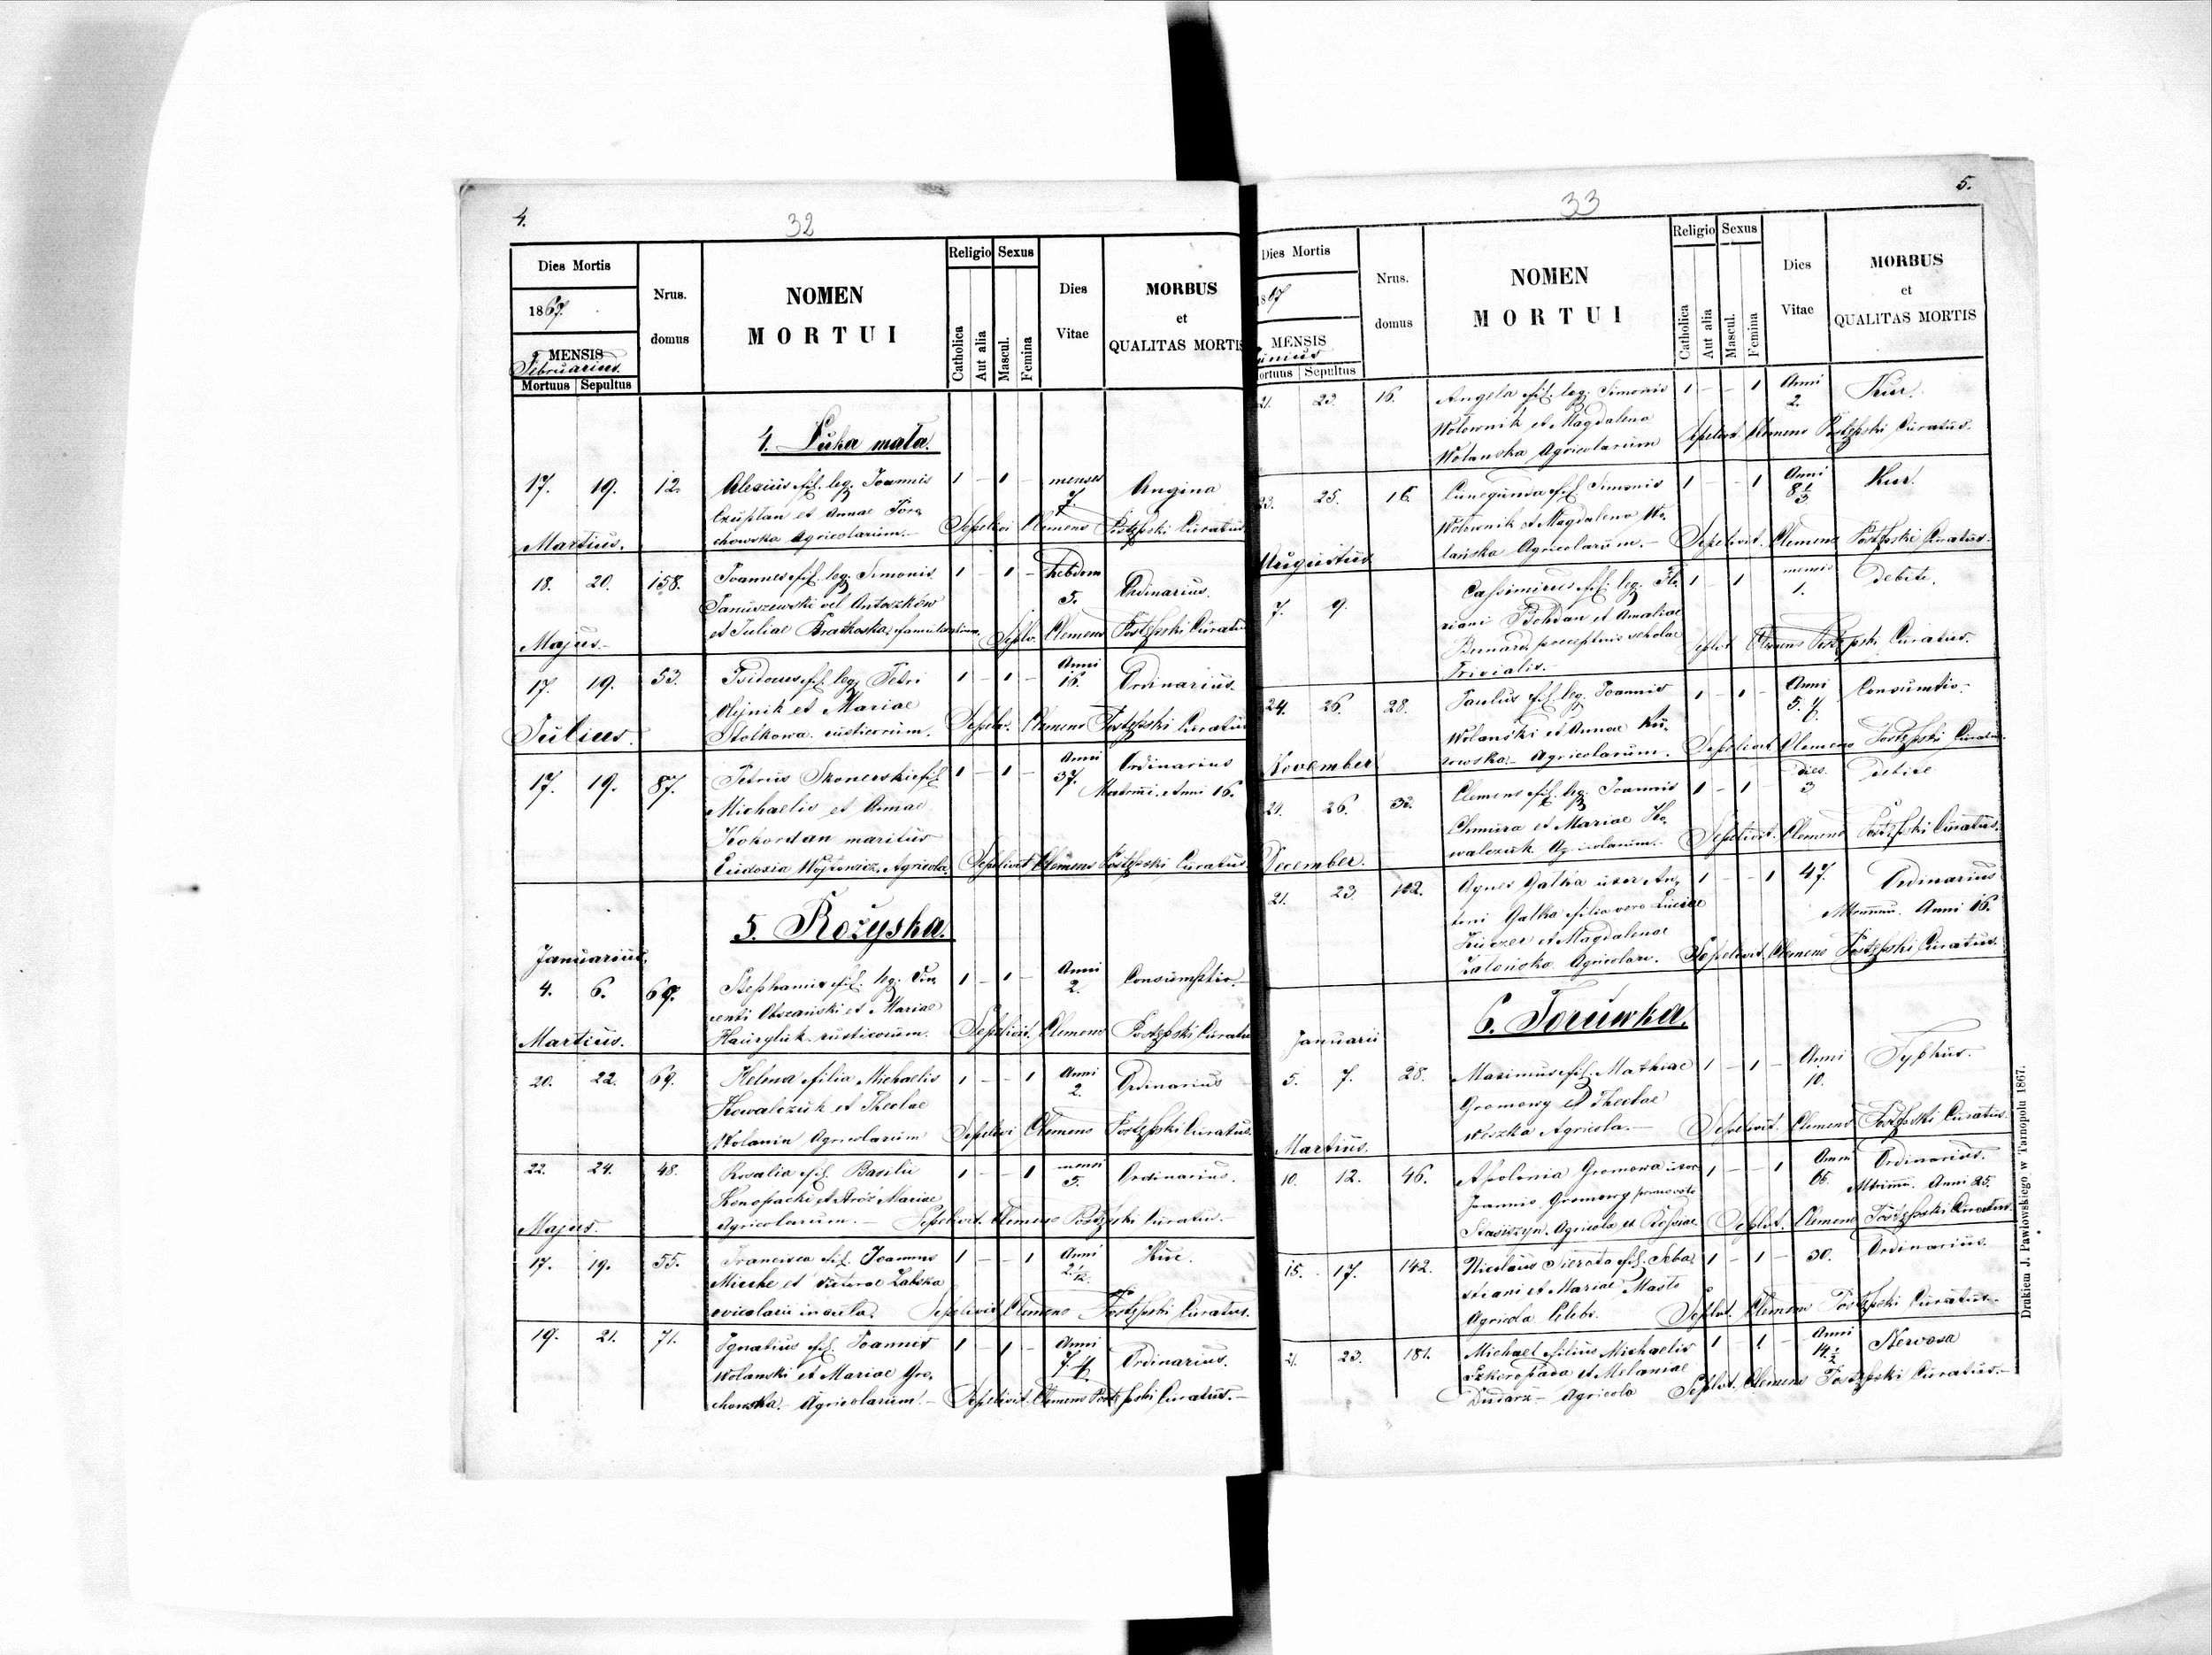 4.
32
Dies Mortis
1867.
MENSIS
Februarius.
Mortuus Sepultus
Nrus.
domus
NOMEN
MORTUI
Religio
Catholica
Aut alia
Sexus
Mascul.
Femina
Dies
Vitae
MORBUS
et
QUALITAS MORTIS
4. Łuka mała.
17. 19. 12. Alexius fil. leg. Joannis 1 - 1 - menses 7. Angina
Czuplan et Annae
chowska Agricolarum. Sepelivi Clemens Postępski Curatus
Martius.
18. 20. 158. Joannes fil. leg. Simonis 1 - 1 - hebdom 5. Ordinarius.
Januszewski vel Antoszków
et Juliae Clemens Postępski Curatus
Majus.
17. 19. 53. Isidorus fil. leg. Petri 1 - 1 - Anni 16. Ordinarius.
Olijnik et Mariae
Stolkowa rusticorum. Sepelv. Clemens Postępski Curatus
Julius.
17. 19. 87. Petrus Skonerski fil. 1 - 1 - Anni 37. Ordinarius
Michaelis et Annae Matrmi. Anni 16.
Kohordan maritus
Eudoxia Wojtowicz, Agricola. Sepelivit Clemens Postępski Curatus
5. Rożyska.
Januarius.
4. 6. 69. fil. leg. Vin 1 - 1 - Anni 2. Consumptio.
centi et Mariae
rusticorum. Sepelivit. Clemens Postępski Curatus
Martius.
20. 22. 69. Helena filia Michaelis 1 - - 1 Anni 2. Ordinarius
Kowalczuk et Theclae
Wolanin Agricolarum Sepelivi Clemens Postępski Curatus.
22. 24. 48. Rosalia fil. Basilii 1 - - 1 mensi 5. Ordinarius.
Konopacki et Mariae
Agricolarum. - Sepelivit. Clemens Postępski Curatus.
Majus.
17. 19. 55. Francisca fil. Joannis 1 - - 1 Anni Kur.
et Zabska
Sepelivit Clemens Postępski Curatus.
19. 21. 71. Ignatius fil. Joannis 1 - 1 - Anni Ordinarius.
Wolanski et Mariae Gro
chowska. Agricolarum. - Sepelivit Clemens Postępski Curatus. -
5.
33
Dies Mortis
1867
MENSIS
Junius
Mortuus Sepultus
Nrus.
domus
NOMEN
MORTUI
Religio
Catholica
Aut alia
Sexus
Mascul.
Femina
Dies
Vitae
MORBUS
et
QUALITAS MORTIS
21. 23. 16. Angela fil. leg. Simonis 1 - - 1 Anni 2. Kur.
Wolownik et Magdalena
Wolanska Agricolarum Sepelivit. Clemens Postępski Curatus.
23. 25. 16. Cunegunda fil. Simonis 1 - - 1 Anni Kur.
Wolownik et Magdalena Wo
lańska Agricolarum. - Sepelivit. Clemens Postępski Curatus.
Augustus
7. 9. Cassimirus fil. leg. Flo 1 - 1 mensis 1. Debite.
riani Bohdan et Amaliae
Bernard, scholae Clemens Postępski Curatus.
Trivialis. -
24. 26. 28. Paulus fil. leg. Joannis 1 - 1 - Anni Consumtio.
Wolanski et Annae Ku
rowska - Agricolarum. Sepelivit Clemens Postępski Curatus.
November
24. 26. 32. Clemens fil. leg. Joannis 1 - 1 - dies 3 Debite
Chmura et Mariae Ko
walczuk Agricolarum. Sepelivit. Clemens Postępski Curatus.
December.
21. 23 102. Agnes Gatka uxor An 1 - - 1 47. Ordinarius
toni Gatka filia vero Anni 16.
et Magdalenae
Agricolare. Sepelivit. Clemens Postępski Curatus.
6. Toruwka.
Januarii
5. 7. 28. Maximus fil. Mathiae 1 - 1 - Anni 10. Typhus.
Gromowy et Theclae
Agricola. - Sepelivit. Clemens Postępski Curatus.
Martius.
10. 12. 46. Apolonia Gromowa uxor 1 - - 1 Anni 65. Ordinarius.
Joannis Gromowy primovoto Anni 25.
Stasiszyn. Agricola et Clemens Postępski Curatus
15. 17. 142. Nicolaus Sierota fil. Seba 1 - 1 - 30. Ordinarius.
stiani et Mariae Masto
Agricola Celebs. Seplvt. Clemens Postępski Curatus. -
21. 23. 181. Michael filius Michaelis 1 - 1 - Anni 14 1/2 Nervosa
et Melaniae
Dudarz - Agricola Seplvt. Clemens Postępski Curatus. -
Drukiem J. Pawłowskiego w Tarnopolu 1867.